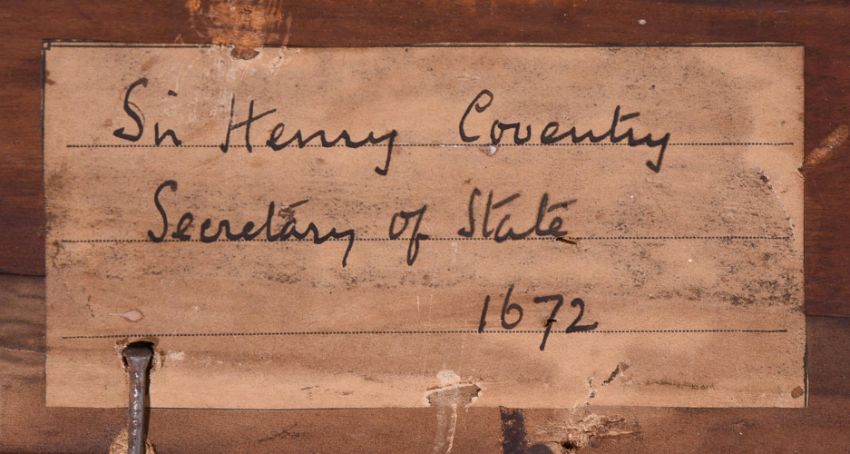 Sir Henry Coventry
Secretary of State
1672